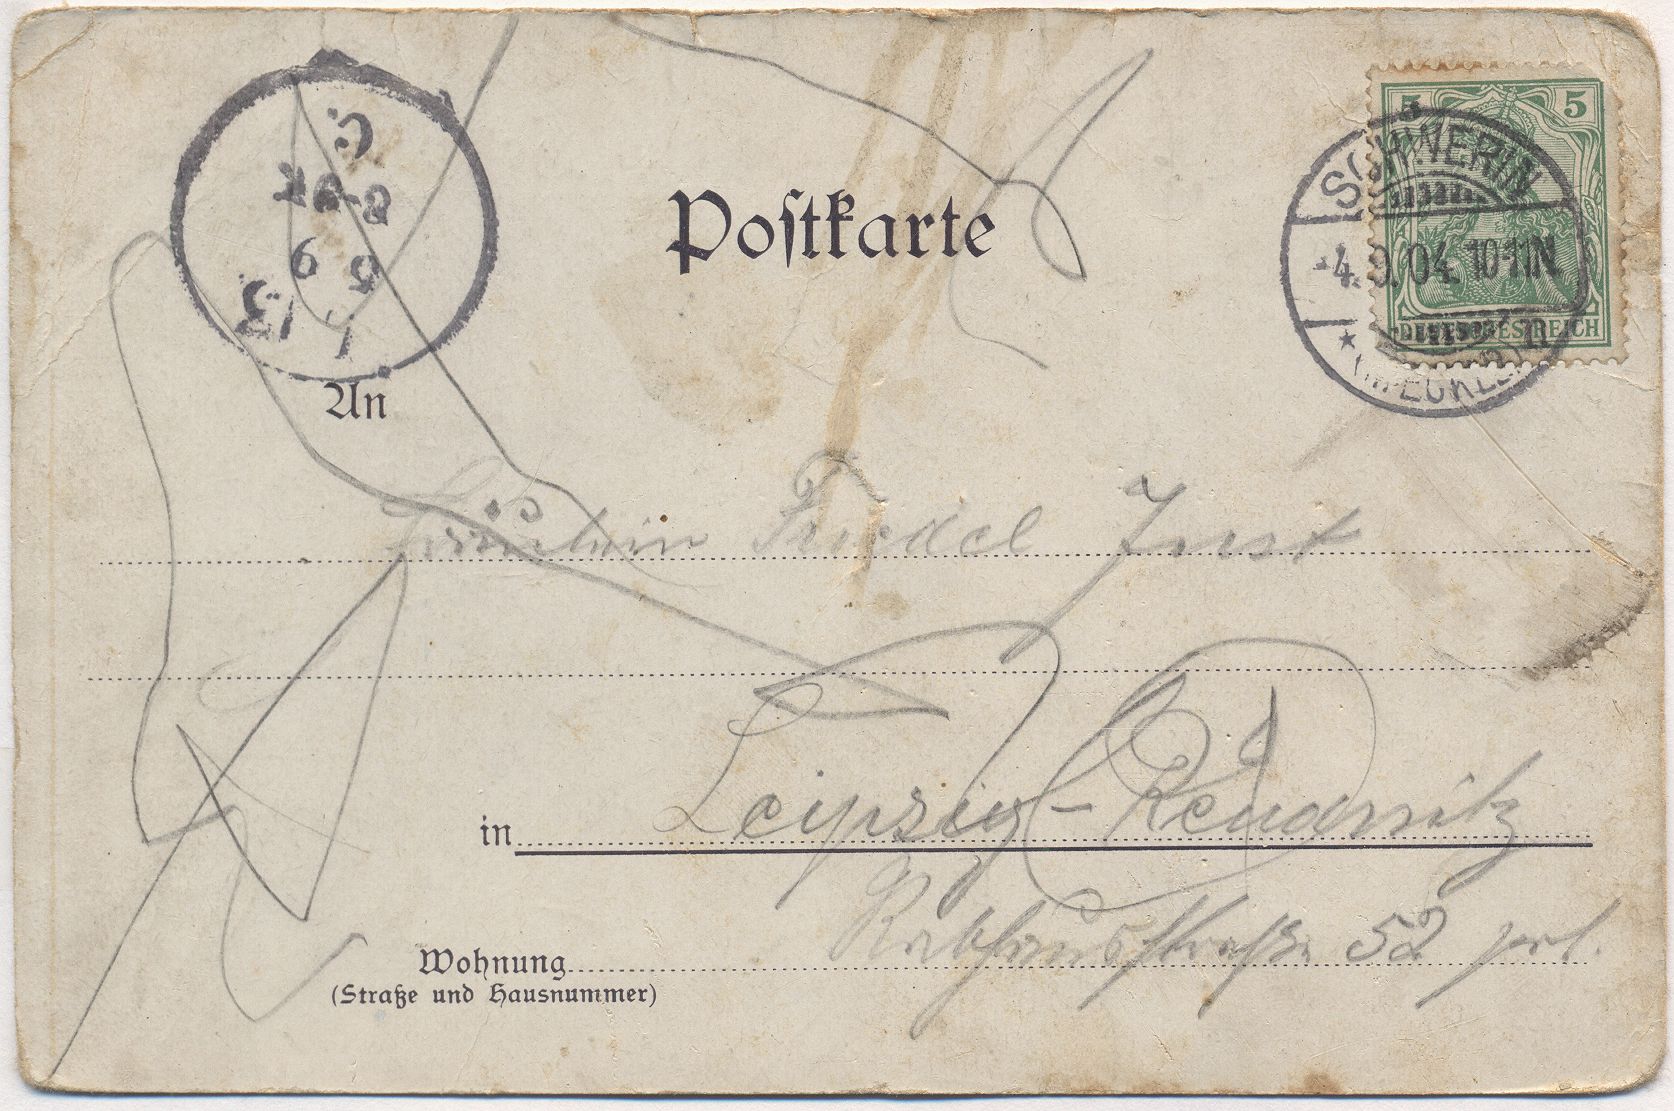 5 5
SCHWERIN
4.9.04. 10-11N.
DEUTSCHES REICH
Postkarte
C.
8-9V
5 9
13.
An
Fräulein Friedel Just
in Leipzig-Reudnitz
Rathausstraße 52 prt.
Wohnung
(Straße und Hausnummer)